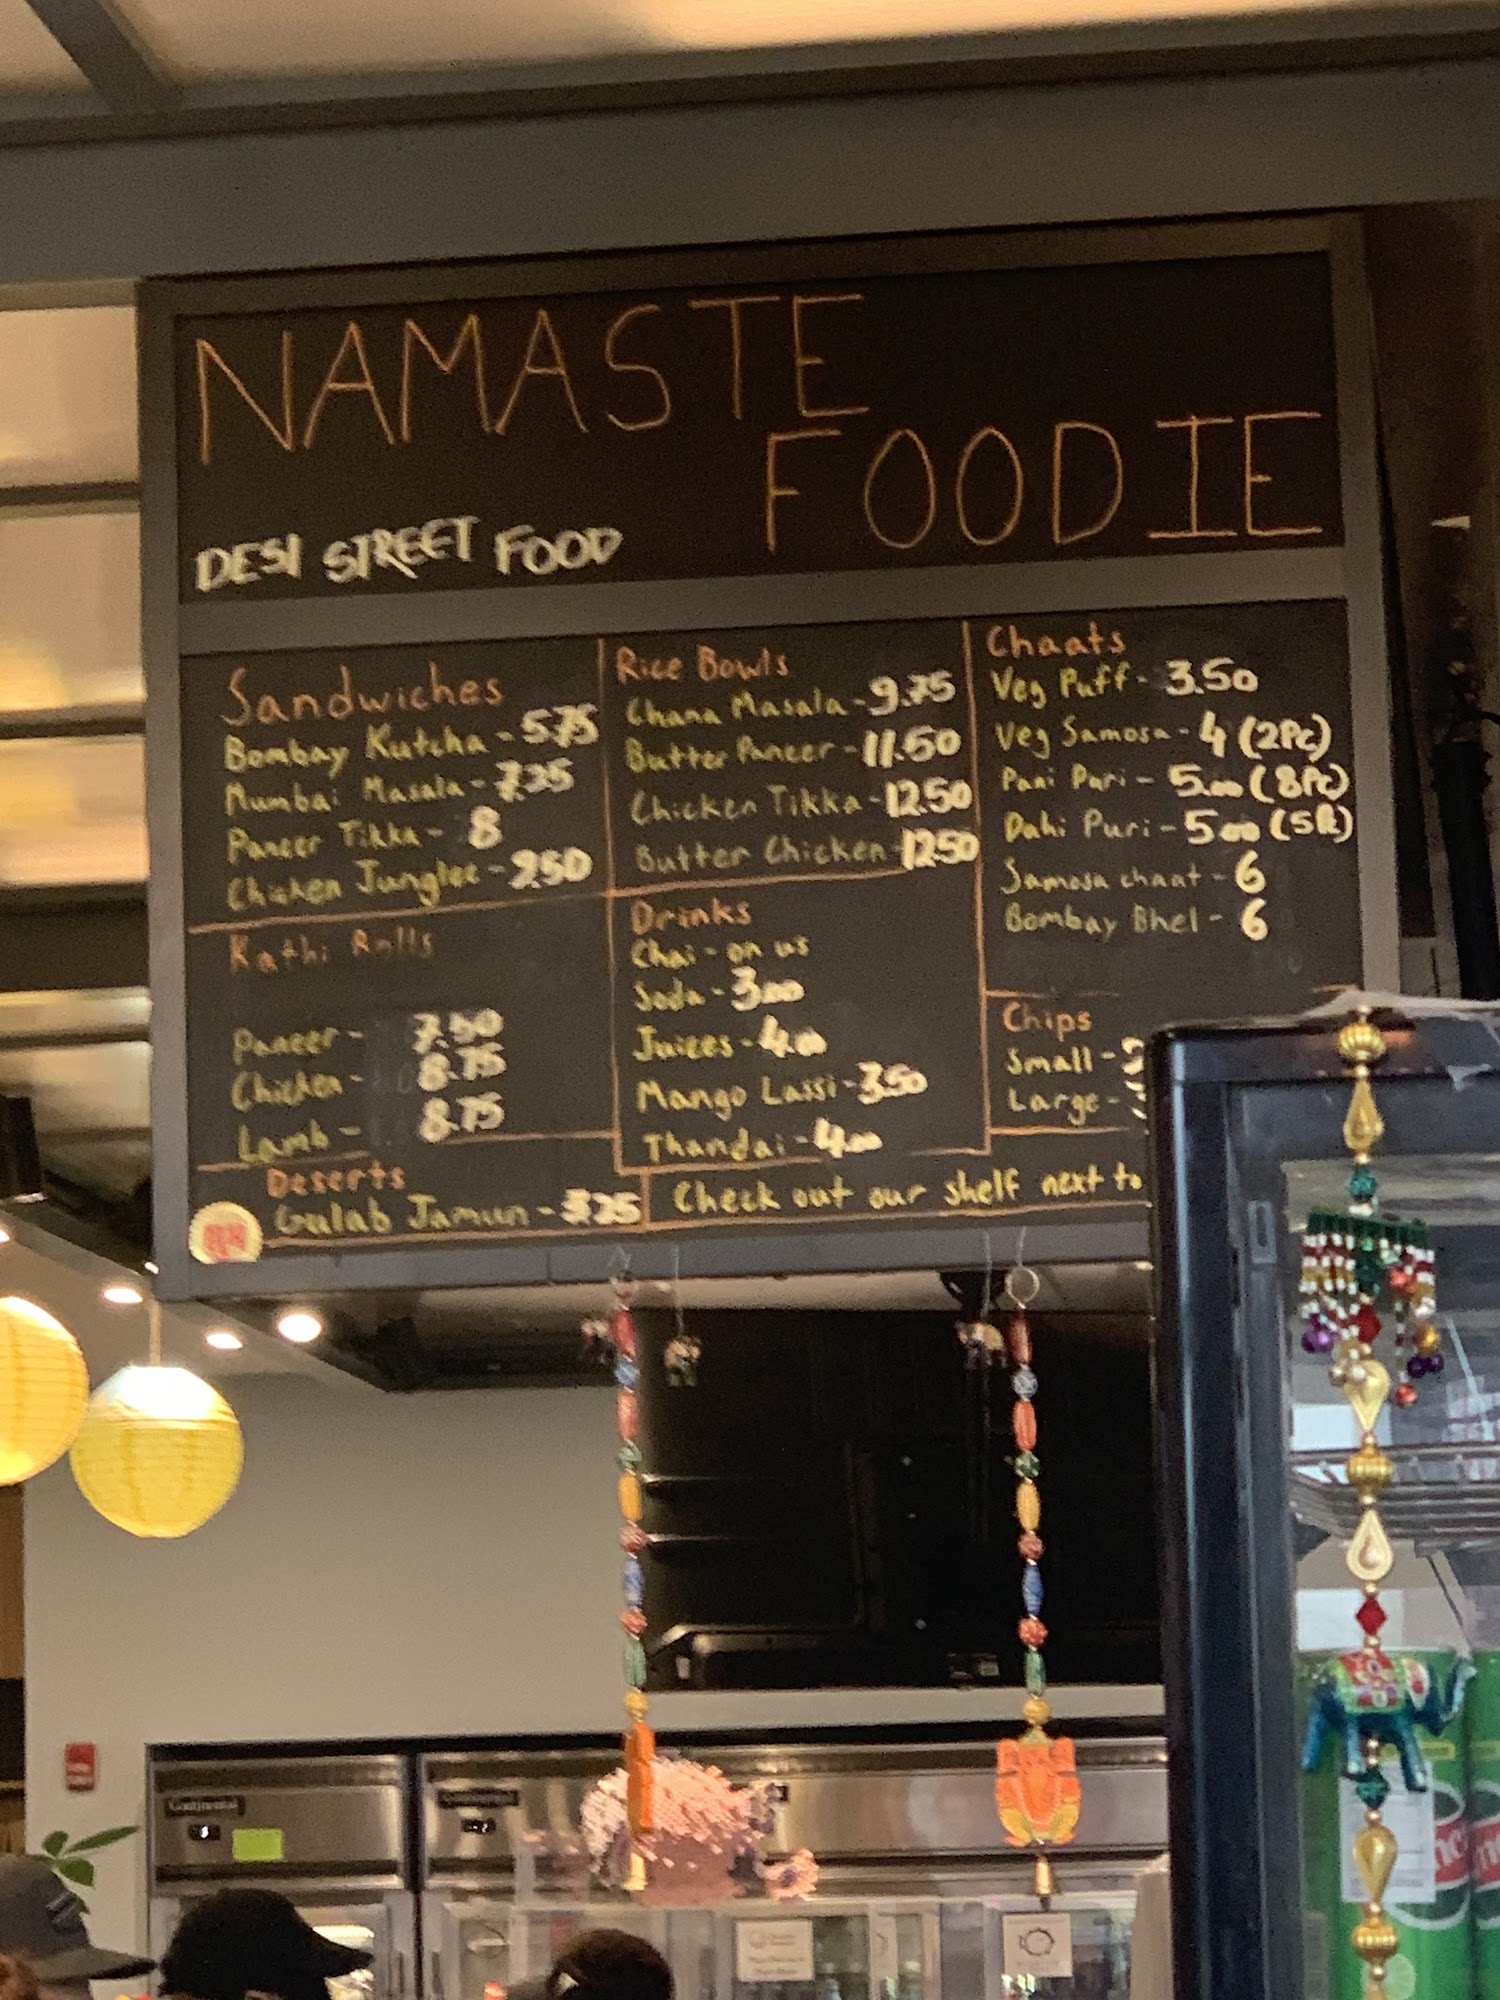 NAMASTE
FOODIE
DESI STREET FOOD
Sandwiches
Bombay Kutcha - 5.75
Mumbai Masala - 7.25
Paneer Tikka - 8
Chicken Junglee - 9.50
Kathi Rolls
Paneer - 7.50
Chicken - 8.75
Lamb - 8.75
Deserts
Gulab Jamun - 3.25
Rice Bowls
Chana Masala - 9.75
Butter Paneer - 11.50
Chicken Tikka - 12.50
Butter Chicken - 12.50
Drinks
Chai - on us
Soda - 3.00
Juices - 4.00
Mango Lassi - 3.50
Thandai - 4.00
Chaats
Veg Puff - 3.50
Veg Samosa - 4 (2Pc)
Pani Puri - 5.00 (8Pc)
Dahi Puri - 5.00
Samosa chaat - 6
Bombay Bhel - 6
Chips
Small -
Large -
Check out our shelf next to
Continental